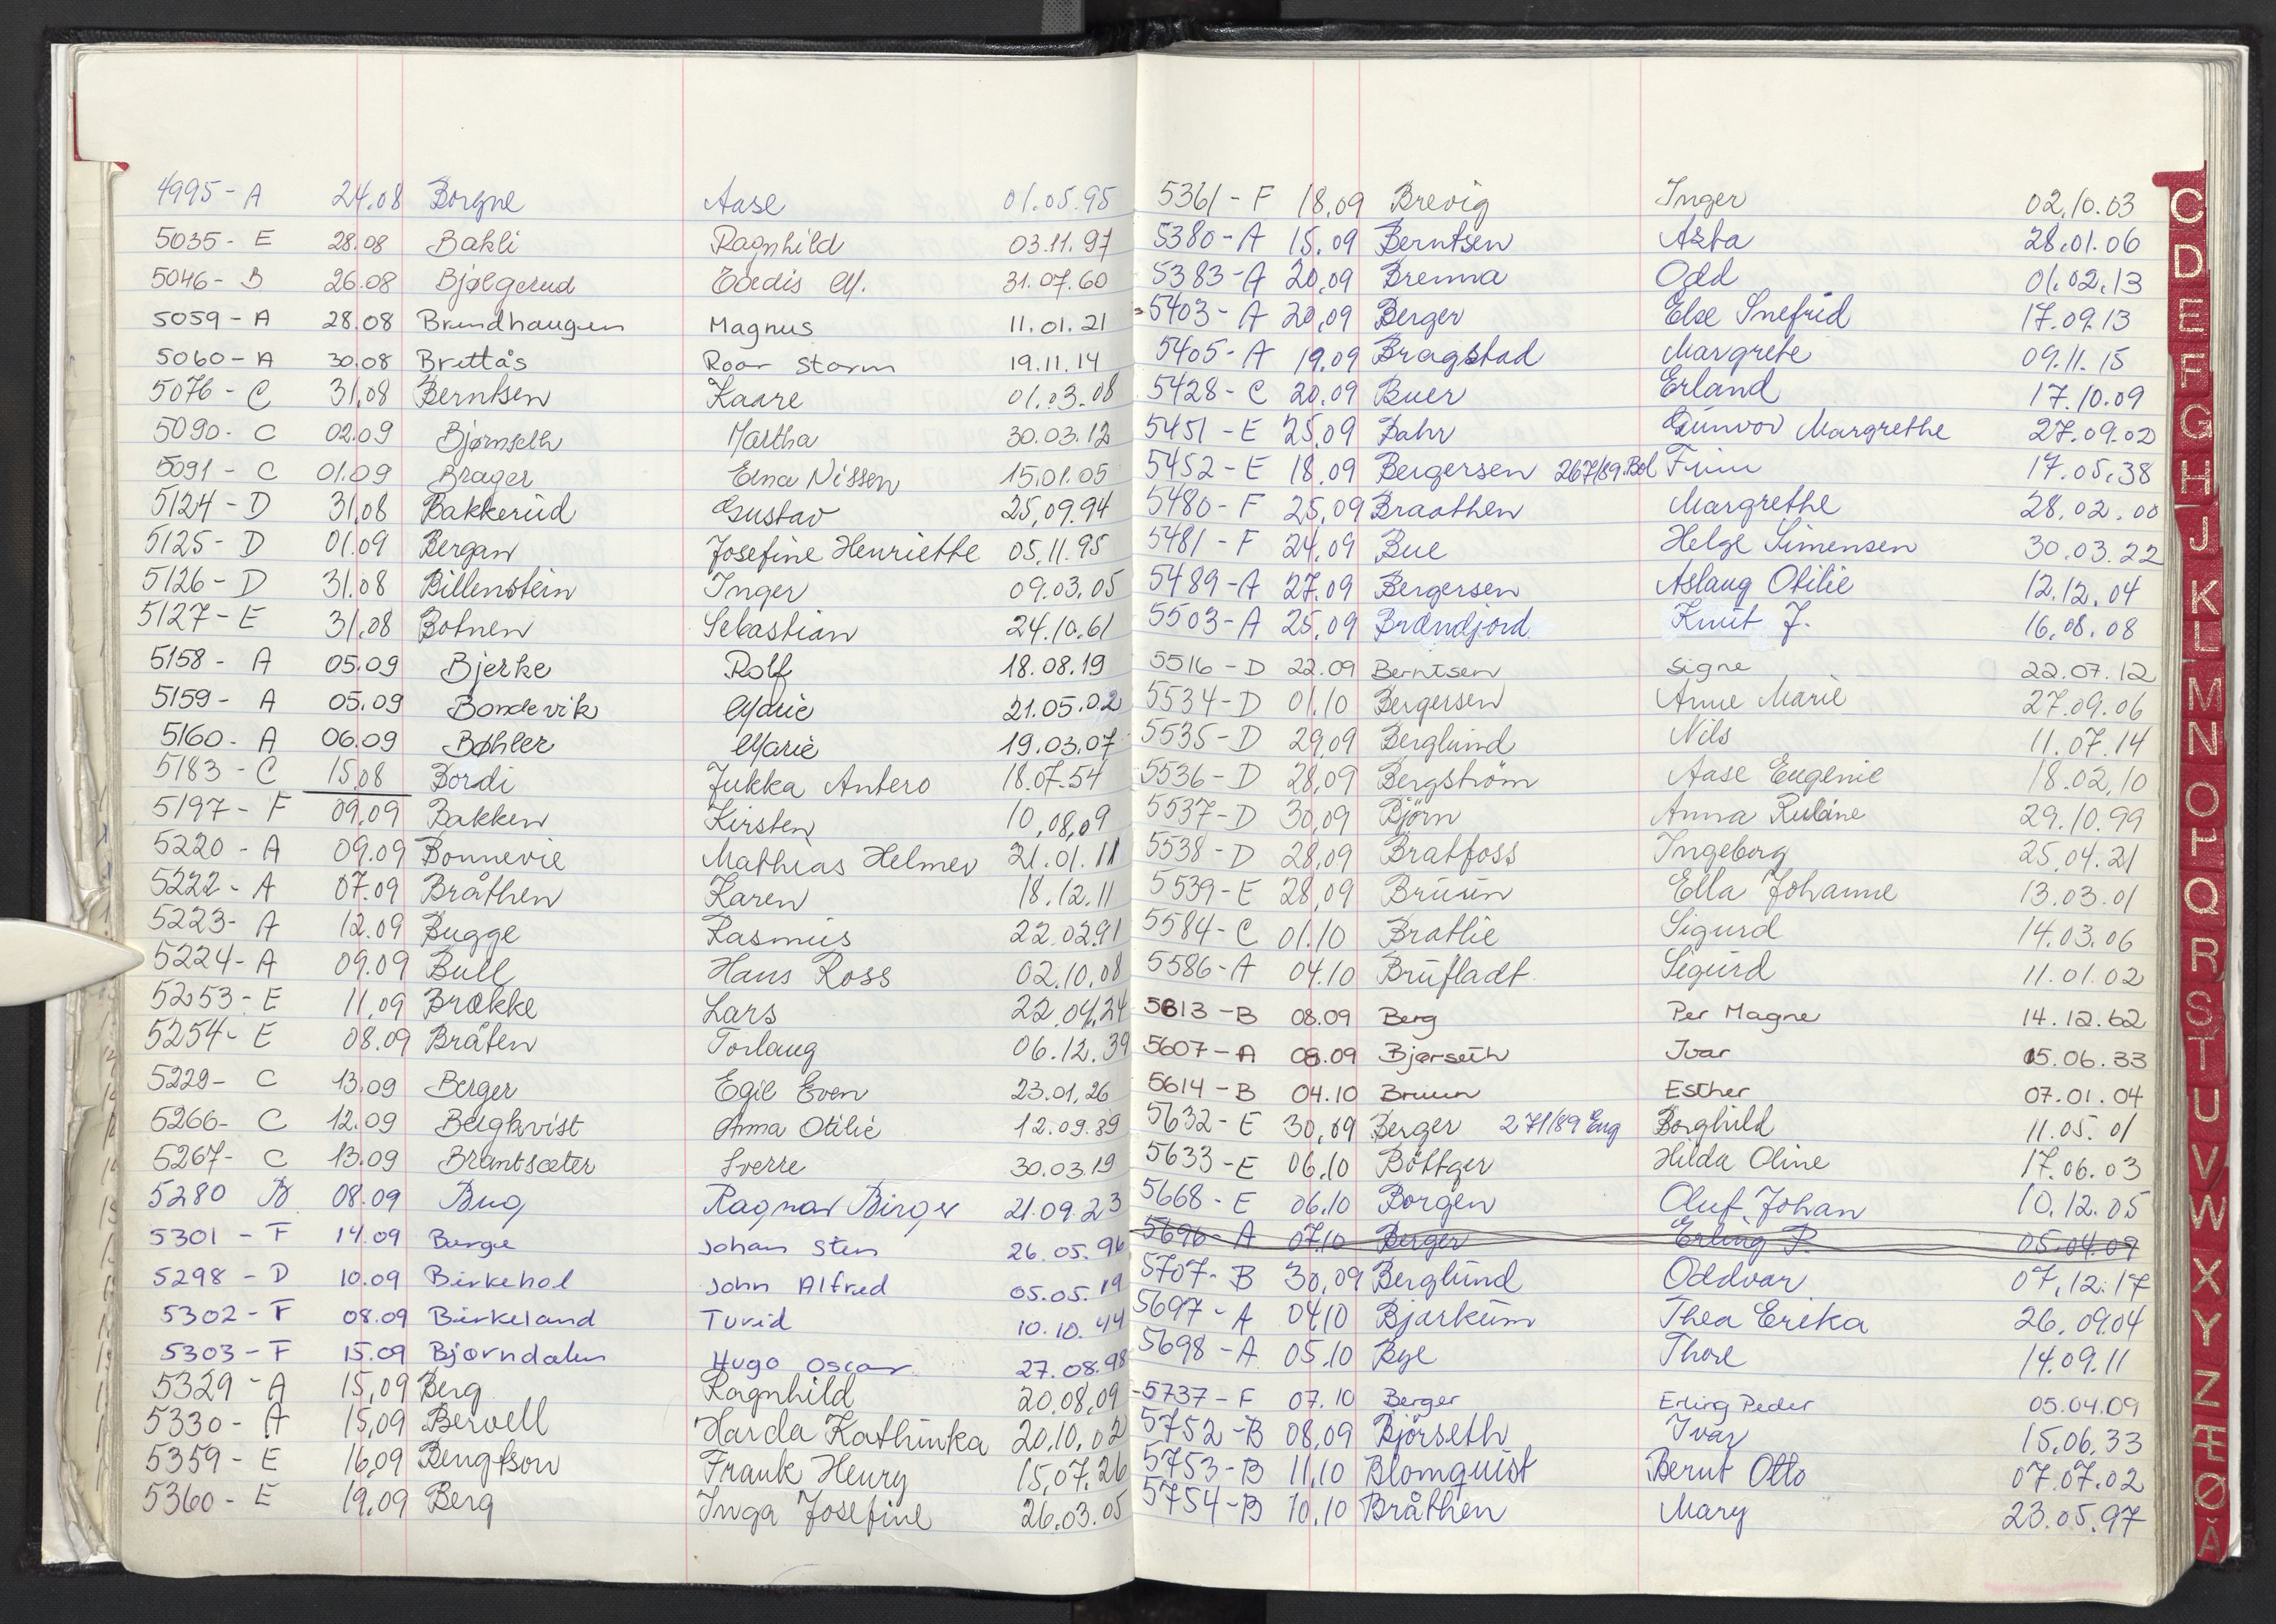 4995 - A 24.08 Borgne Aase 01.05.95
5035 - E 28.08 Bakli Ragnhild 03.11.97
5046 - B 26.08 Bjølgerud Eldis M. 31.07.60
5059 - A 28.08 Brendhaugen Magnus 11.01.21
5060 - A 30.08 Brettås Roar Storm 19.11.14
5076 - C 31.08 Berntsen Kaare 01.03.08
5090 - C 02.09 Bjørnseth Martha 30.03.12
5091 - C 01.09 Brager Edna Nissen 15.01.05
5124 - D 31.08 Bakkerud Gustav 25.09.94
5125 - D 01.09 Bergan Josefine Henriette 05.11.95
5126 - D 31.08 Billenstein Inger 09.03.05
5127 - E 31.08 Botnen Sebastian 24.10.61
5158 - A 05.09 Bjerke Rolf 18.08.19
5159 - A 05.09 Bondevik Marie 21.05.02
5160 - A 06.09 Bøhler Marie 19.03.07
5183 - C 15.08 Bordi Jukka Antero 18.07.54
5197 - F 09.09 Bakken Kirsten 10.08.09
5220 - A 09.09 Bonnevie Mathias Helmer 21.01.11
5222 - A 07.09 Bråthen Karen 18.12.11
5223 - A 12.09 Bugge Rasmus 22.02.91
5224 - A 09.09 Bull Hans Ross 02.10.08
5253 - E 11.09 Brekke Lars 22.04.24
5254 - E 08.09 Bråten Torlaug 06.12.39
5229 - C 13.09 Berger Egil Even 23.01.26
5266 - C 12.09 Bergkvist Anna Otilie 12.09.89
5267 - C 13.09 Brantsæter Sverre 30.03.19
5280 B 08.09 Bug Ragnar Birger 21.09.23
5301 - F 14.09 Berge Johan Sten 26.05.96
5298 - D 10.09 Birkehol John Alfred 05.05.19
5302 - F 08.09 Birkeland Turid 10.10.44
5303 - F 15.09 Bjørndalen Hugo Oscar 27.08.98
5329 - A 15.09 Berg Ragnhild 20.08.09
5330 - A 15.09 Bervell Harda Kathinka 20.10.02
5359 - E 16.09 Bengtson Frank Henry 15.07.26
5360 - E 19.09 Berg Inga Josefine 26.03.05
5361 - F 18.09 Brevig Inger 02.10.03
5380 - A 15.09 Berntsen Asta 28.01.06
5383 - A 20.09 Brenna Odd 01.02.13
5403 - A 20.09 Berger Else Snefrid 17.09.13
5405 - A 19.09 Bragstad Margrete 09.11.15
5428 - C 20.09 Buer Erland 17.10.09
5451 - E 25.09 Bahr Gunvor Margrethe 27.09.02
5452 - E 18.09 Bergersen 267/89.Bol Finn 17.05.38
5480 - F 25.09 Braathen Margrethe 28.02.00
5481 - F 24.09 Bue Helge Simensen 30.03.22
5489 - A 27.09 Bergersen Aslaug Otilie 12.12.04
5503 - A 25.09 Brandjord Knut J. 16.08.08
5516 - D 22.09 Berntsen Signe 22.07.12
5534 - D 01.10 Bergersen Anne Marie 27.09.06
5535 - D 29.09 Berglund Nils 11.07.14
5536 - D 28.09 Bergström Aase Eugenie 18.02.10
5537 - D 30.09 Björn Anna 29.10.99
5538 - D 28.09 Bratfoss Ingeborg 25.04.21
5539 - E 28.09 Bruun Ella Johanne 13.03.01
5584 - C 01.10 Bratlie Sigurd 14.03.06
5586 - A 04.10 Brufladt Sigurd 11.01.02
5613 - B 08.09 Berg Per Magne 14.12.62
5607 - A 08.09 Bjørseth Ivar 15.06.33
5614 - B 04.10 Bruun Esther 07.01.04
5632 - E 30.09 Berger 271/89 Eng Borghild 11.05.01
5633 - E 06.10 Böttger Hilda Oline 17.06.03
5668 - E 06.10 Borgen Oluf Johan 10.12.05
5696 - A 07.10 Berger Erling P. 05.04.09
5707 - B 30.09 Berglund Oddvar 07.12.17
5697 - A 04.10 Bjarkum Thea Erika 26.09.04
5698 - A 05.10 Bye Thore 14.09.11
5737 - F 07.10 Berger Erling Peder 05.04.09
5752 - B 08.09 Björseth Ivar 15.06.33
5753 - B 11.10 Blomquist Bernt Otto 07.07.02
5754 - B 10.10 Bråthen Mary 23.05.97
C
D
E
F
G
H
J
K
L
M
N
O
P
Q
R
S
T
U
V
W
X
Y
Z
Æ
Ø
Å